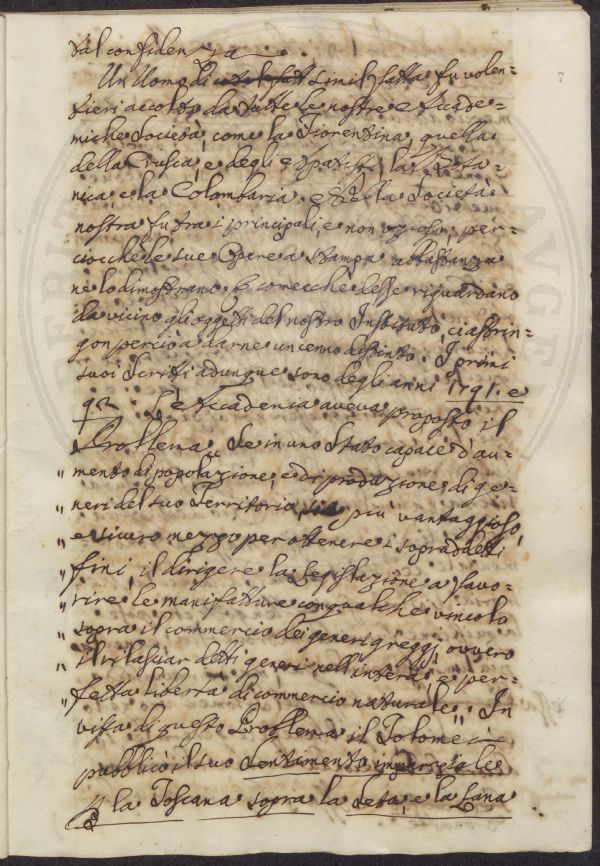 tal confidenza.
Un Uomo di simil fatta fu volen=
tieri accolto da tutte le nostre Accade=
miche Società, come la Fiorentina, quella
della Crusca, e degli Apatisti, la Bota=
nica, e la Colombaria. e della Società
nostra fu tra i principali, e non ozioso, per=
ciocchè le sue Opere a stampa abbastanza
ne lo dimostrano. E comecchè desse riguardano
da vicino gli oggetti del nostro Instituto, ci astrin=
gon perciò a darne un cenno distinto. I primi
suoi Scritti adunque sono degli anni 1791. e
92. L'Accademia aveva proposto il
Problema „ Se in uno Stato capace d'au=
„ mento di popolazione, e di produzione di ge=
„ neri del suo Territorio, sia più vantaggioso,
„ e sicuro mezzo per ottenere i sopraddetti
„ fini, il dirigere la Legislazione a favo=
„ rire le manifatture con qualche vincolo
„ sopra il commercio dei generi greggi, ovvero
„ il rilasciar detti generi nell'intera, e per=
„ fetta libertà di commercio naturale „. In
vista di questo Problema il Tolomei
pubblicò il suo Sentimento imparziale
p la Toscana sopra la Seta, e la Lana
7